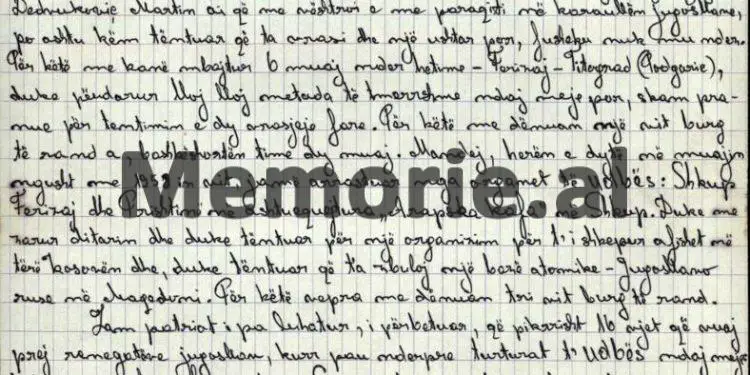 Dednukovic Martin ai që me vështroi e me paraqiti në karaullën jugosllave,
po ashtu këm tëntuar që ta vrasi dhe një ushtar por, fusheku nuk mu nder.
Për këtë me kanë mbajtur 6 muaj nder hetime - Ferizaj - Titograd (Podgorie),
duke përdorur lloj lloj metoda të tmerrshme ndaj meje por, skam pra-
nue për tentimin e dy vrasjeje fare. Për këtë me dënuan një vit burg
të rand a, bashkshortën time dy muaj. Mandej, herën e dytë në muajin
ngusht me 1958 in vit, jamë arrastuar nga organet të UDBës: Shkup
Ferizaj dhe Prishtinë në ashtuequojtura "Arapska kafa" në Shkup. Duke me
xarur ditarim dhe duke tëntuar për një organizim për t'i shkepur afishet në
tërë kosovën dhe, duke tëntuar që ta zbuloj një bazë atomike - Jugosllavo
ruse në Maqedoni. Për këtë vepra me dënuan tri vit burg të rand.
Jam patriot i pa luhatur, i përbetuar, që pikrisht 16 vjet që vuaj
prej renegatëve jugosllav, kurr pau nderpre torturat t' UDBës ndaj meje
Memorie.al